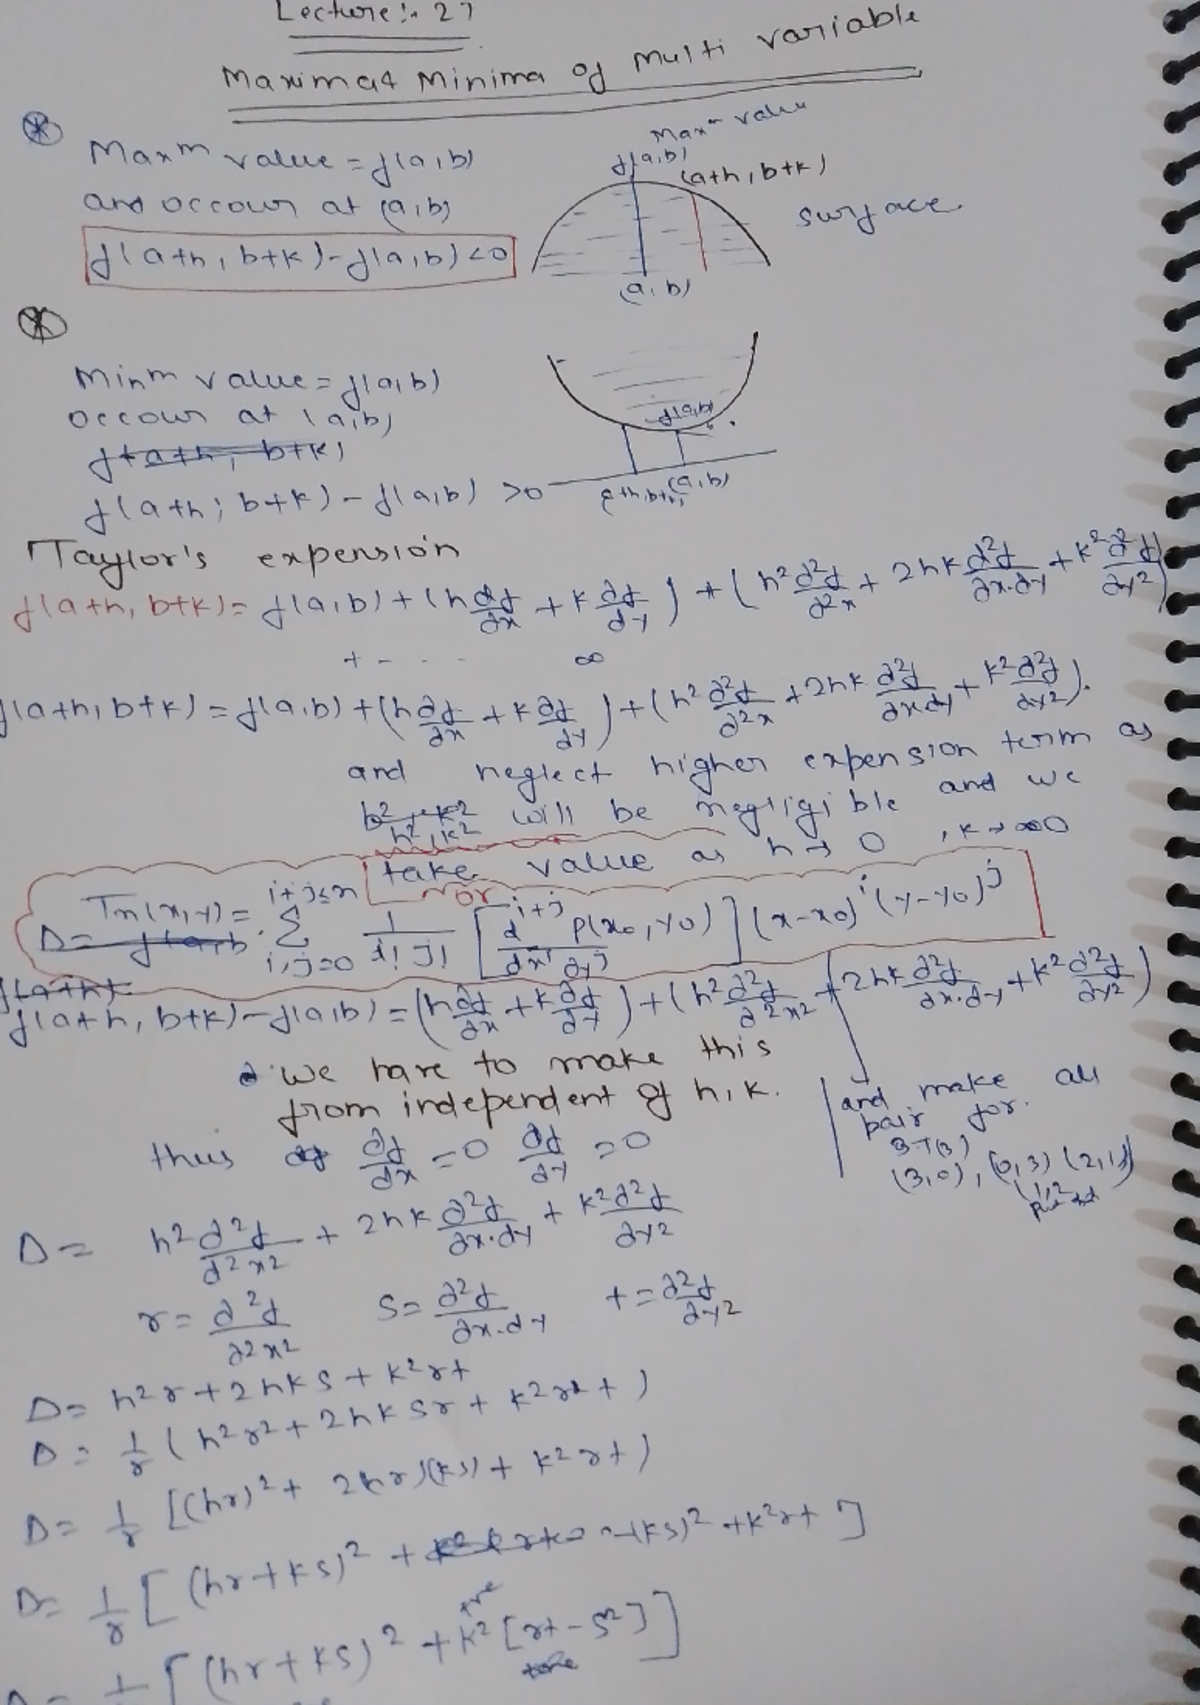 Lecture:- 27
Maxima & Minima of Multi variable
Maxm value = f(a,b)
and occour at (a,b)
f(a+h, b+k) - f(a,b) <0
Maxm value
f(a,b)
(a+h, b+k)
surface
(a,b)
Minm value = f(a,b)
occour at (a,b)
f(a+h, b+k)
f(a+h; b+k) - f(a,b) >0
f(a,b)
(a,b)
Taylor's expension
f(a+h, b+k) = f(a,b) + (h ∂f/∂x + k ∂f/∂y) + (h² ∂²f/∂²x + 2hk ∂²f/∂x.∂y + k² ∂²f/∂y²)
+ - . . . ∞
f(a+h, b+k) = f(a,b) + (h ∂f/∂x + k ∂f/∂y) + (h² ∂²f/∂²x + 2hk ∂²f/∂x∂y + k² ∂²f/∂y²).
and neglect higher expension term as
h², k² will be negligible and we
take value as h→0, k→0
or
Tn(x,y) = Σ i+j≤n i,j=0 1/i! j! [∂^i+j/∂x^i ∂y^j P(x0, y0)] (x-x0)^i (y-y0)^j
f(a+h)
f(a+h, b+k) - f(a,b) = (h ∂f/∂x + k ∂f/∂y) + (h² ∂²f/∂²x² + 2hk ∂²f/∂x.∂y + k² ∂²f/∂y²)
we have to make this
from independent of h, k.
and make all
pair for.
(3,0), (0,3) (2,1)
thus ∂f/∂x = 0 ∂f/∂y = 0
D = h² ∂²f/∂²x² + 2hk ∂²f/∂x.∂y + k² ∂²f/∂y²
r = ∂²f/∂²x² S = ∂²f/∂x.∂y t = ∂²f/∂y²
D = h²r + 2hks + k²rt
D = 1/r (h²r² + 2hksr + k²rt)
D = 1/r [(hr)² + 2(hr)(ks) + k²rt)
D = 1/r [(hr+ks)² + -(ks)² + k²rt]
D = 1/r [(hr+ks)² + k² [rt-s²]]
+ve